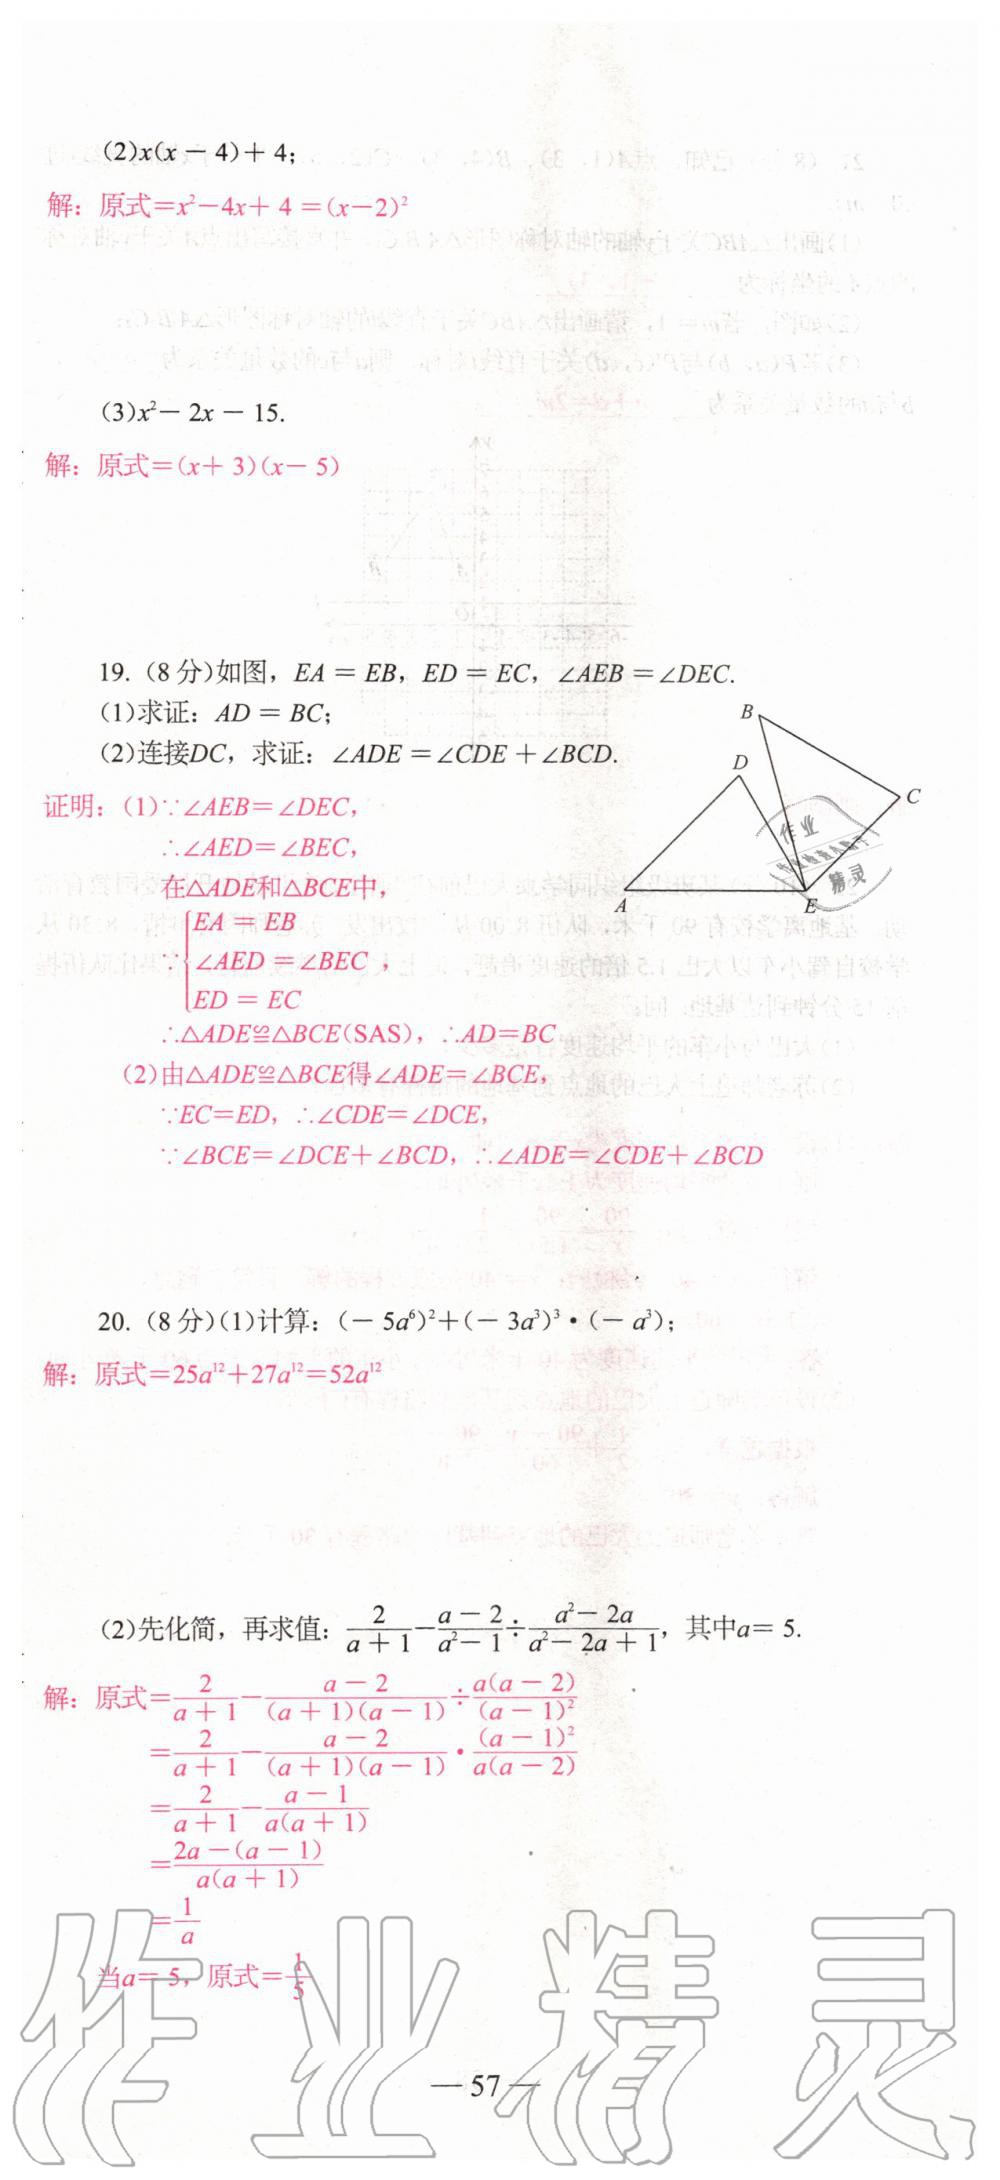 (2)x(x－4)＋4;
解：原式＝x²－4x＋4＝(x－2)²
(3)x²－2x－15.
解：原式＝(x＋3)(x－5)
19. (8分)如图，EA＝EB，ED＝EC，∠AEB＝∠DEC.
(1)求证：AD＝BC;
(2)连接DC，求证：∠ADE＝∠CDE＋∠BCD.
B
D
C
A
E
作业
精灵
证明：(1)∵∠AEB＝∠DEC，
∴∠AED＝∠BEC，
在△ADE和△BCE中，
EA＝EB
∠AED＝∠BEC，
ED＝EC
∴△ADE≌△BCE(SAS)，∴AD＝BC
(2)由△ADE≌△BCE得∠ADE＝∠BCE，
∵EC＝ED，∴∠CDE＝∠DCE，
∵∠BCE＝∠DCE＋∠BCD，∴∠ADE＝∠CDE＋∠BCD
20. (8分)(1)计算：(－5a⁶)²＋(－3a³)³•(－a³);
解：原式＝25a¹²＋27a¹²＝52a¹²
(2)先化简，再求值：2/(a＋1)－(a－2)/(a²－1)÷(a²－2a)/(a²－2a＋1)，其中a＝5.
解：原式＝2/(a＋1)－(a－2)/((a＋1)(a－1))÷a(a－2)/(a－1)²
＝2/(a＋1)－(a－2)/((a＋1)(a－1))•(a－1)²/(a(a－2))
＝2/(a＋1)－(a－1)/(a(a＋1))
＝(2a－(a－1))/(a(a＋1))
＝1/a
当a＝5，原式＝1/5
作业精灵
—57—